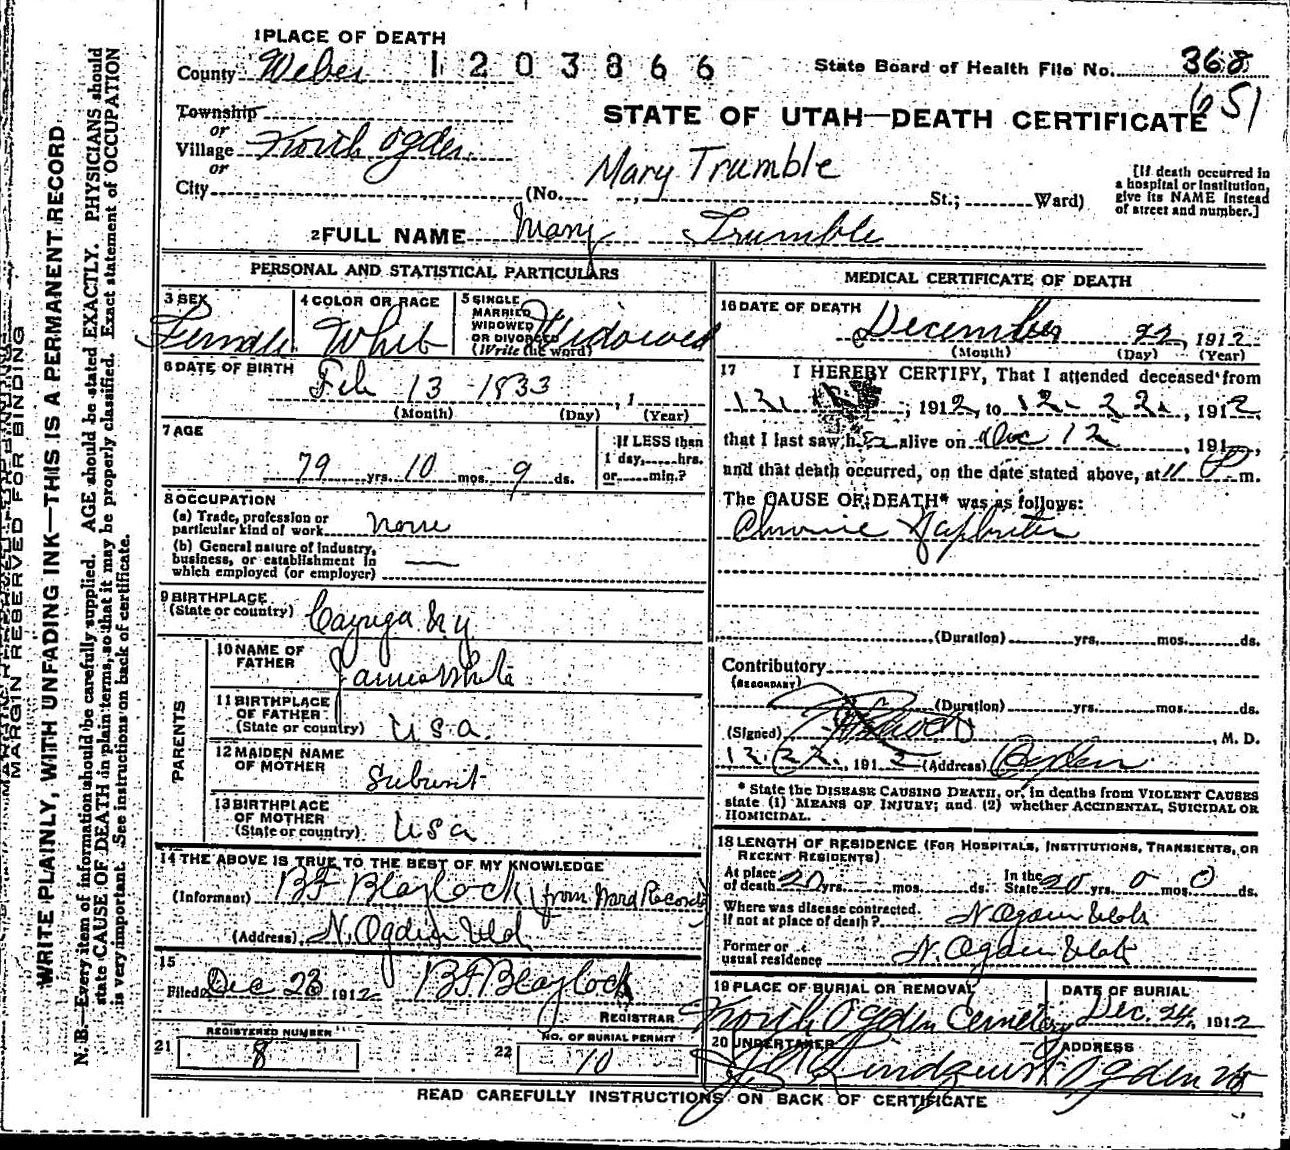 1 PLACE OF DEATH
County Weber 1203866 State Board of Health File No. 368
651
Township
STATE OF UTAH—DEATH CERTIFICATE
or
Village North Ogden.
or
City (No. , Mary Trumble St.; Ward)
[If death occurred in
a hospital or institution,
give its NAME instead
of street and number.]
2 FULL NAME Mary Trumble
PERSONAL AND STATISTICAL PARTICULARS
3 SEX
Female
4 COLOR OR RACE
White
5 SINGLE
MARRIED
WIDOWED
OR DIVORCED
(Write the word)
Widowed
6 DATE OF BIRTH
Feb 13 1833 , 1
(Month) (Day) (Year)
7 AGE
79 yrs. 10 mos. 9 ds.
If LESS than
1 day, hrs.
or min.?
8 OCCUPATION
(a) Trade, profession or
particular kind of work none
(b) General nature of industry,
business, or establishment in
which employed (or employer) —
9 BIRTHPLACE
(State or country) Cayuga N Y
PARENTS
10 NAME OF
FATHER James White
11 BIRTHPLACE
OF FATHER
(State or country) U.S.A.
12 MAIDEN NAME
OF MOTHER
13 BIRTHPLACE
OF MOTHER
(State or country) USA
14 THE ABOVE IS TRUE TO THE BEST OF MY KNOWLEDGE
(Informant) BF Blaylock (from Ward Records)
(Address) N. Ogden Utah
15
Filed Dec 23 1912 BF Blaylock
REGISTRAR
21 REGISTERED NUMBER
8
22 NO. OF BURIAL PERMIT
10
MEDICAL CERTIFICATE OF DEATH
16 DATE OF DEATH
December 22, 1912
(Month) (Day) (Year)
17 I HEREBY CERTIFY, That I attended deceased from
12. , 1912, to 12- 22, , 1912,
that I last saw her alive on Dec 12 , 191 ,
and that death occurred, on the date stated above, at 11 P m.
The CAUSE OF DEATH* was as follows:
Chronic Nephritis
(Duration) yrs. mos. ds.
Contributory
(SECONDARY)
(Duration) yrs. mos. ds.
(Signed) , M. D.
12.22, 1912 (Address) Ogden
* State the DISEASE CAUSING DEATH, or, in deaths from VIOLENT CAUSES
state (1) MEANS OF INJURY; and (2) whether ACCIDENTAL, SUICIDAL OR
HOMICIDAL.
18 LENGTH OF RESIDENCE (FOR HOSPITALS, INSTITUTIONS, TRANSIENTS, OR
RECENT RESIDENTS)
At place
of death 20 yrs. mos. ds. In the
State 20 yrs. 0 mos. 0 ds.
Where was disease contracted,
If not at place of death? N Ogden Utah
Former or
usual residence N. Ogden Utah
19 PLACE OF BURIAL OR REMOVAL
North Ogden Cemetery
DATE OF BURIAL
Dec. 24, 1912
20 UNDERTAKER
Lindquist
ADDRESS
Ogden
READ CAREFULLY INSTRUCTIONS ON BACK OF CERTIFICATE
MARGIN RESERVED FOR BINDING
WRITE PLAINLY, WITH UNFADING INK—THIS IS A PERMANENT RECORD
N. B.—Every item of information should be carefully supplied. AGE should be stated EXACTLY. PHYSICIANS should
state CAUSE OF DEATH in plain terms, so that it may be properly classified. Exact statement of OCCUPATION
is very important. See instructions on back of certificate.